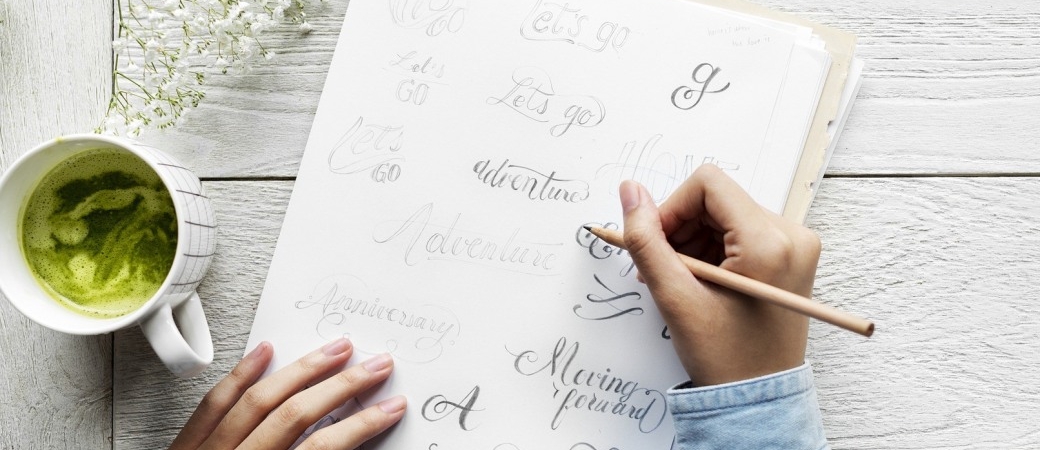 GO
Let's go
Let's
GO
Lets go
g
Let's
GO
adventure
Adventure
Anniversary
Moving
forward
A